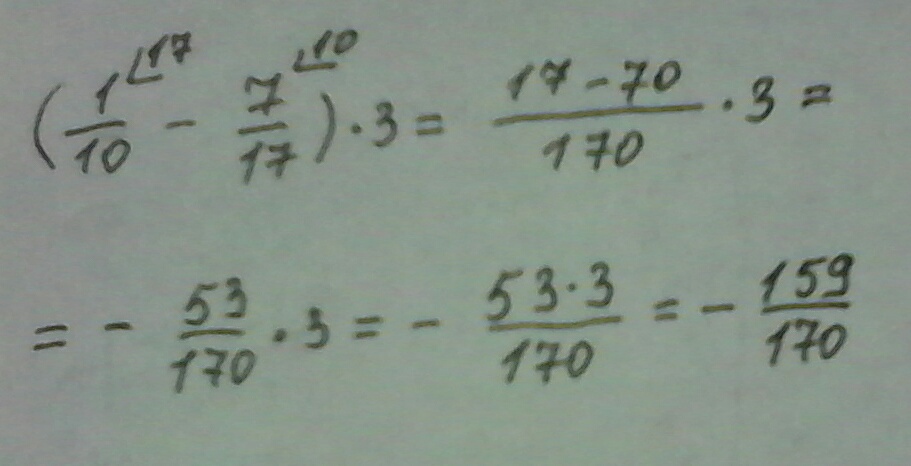 (1/10 ⌞17 − 7/17 ⌞10) · 3 = (17 − 70)/170 · 3 =
= − 53/170 · 3 = − (53 · 3)/170 = − 159/170